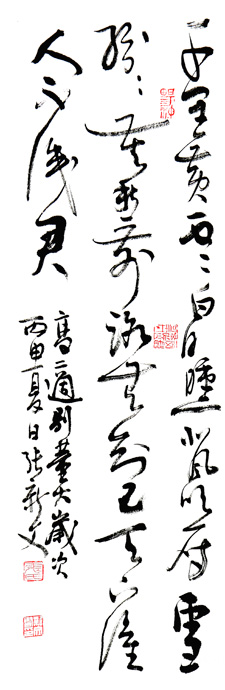 千里黄云白日曛北風吹雁雪
紛〻莫愁前路無知己天下誰
人不識君
高適別董大歲次
丙申夏日张新文